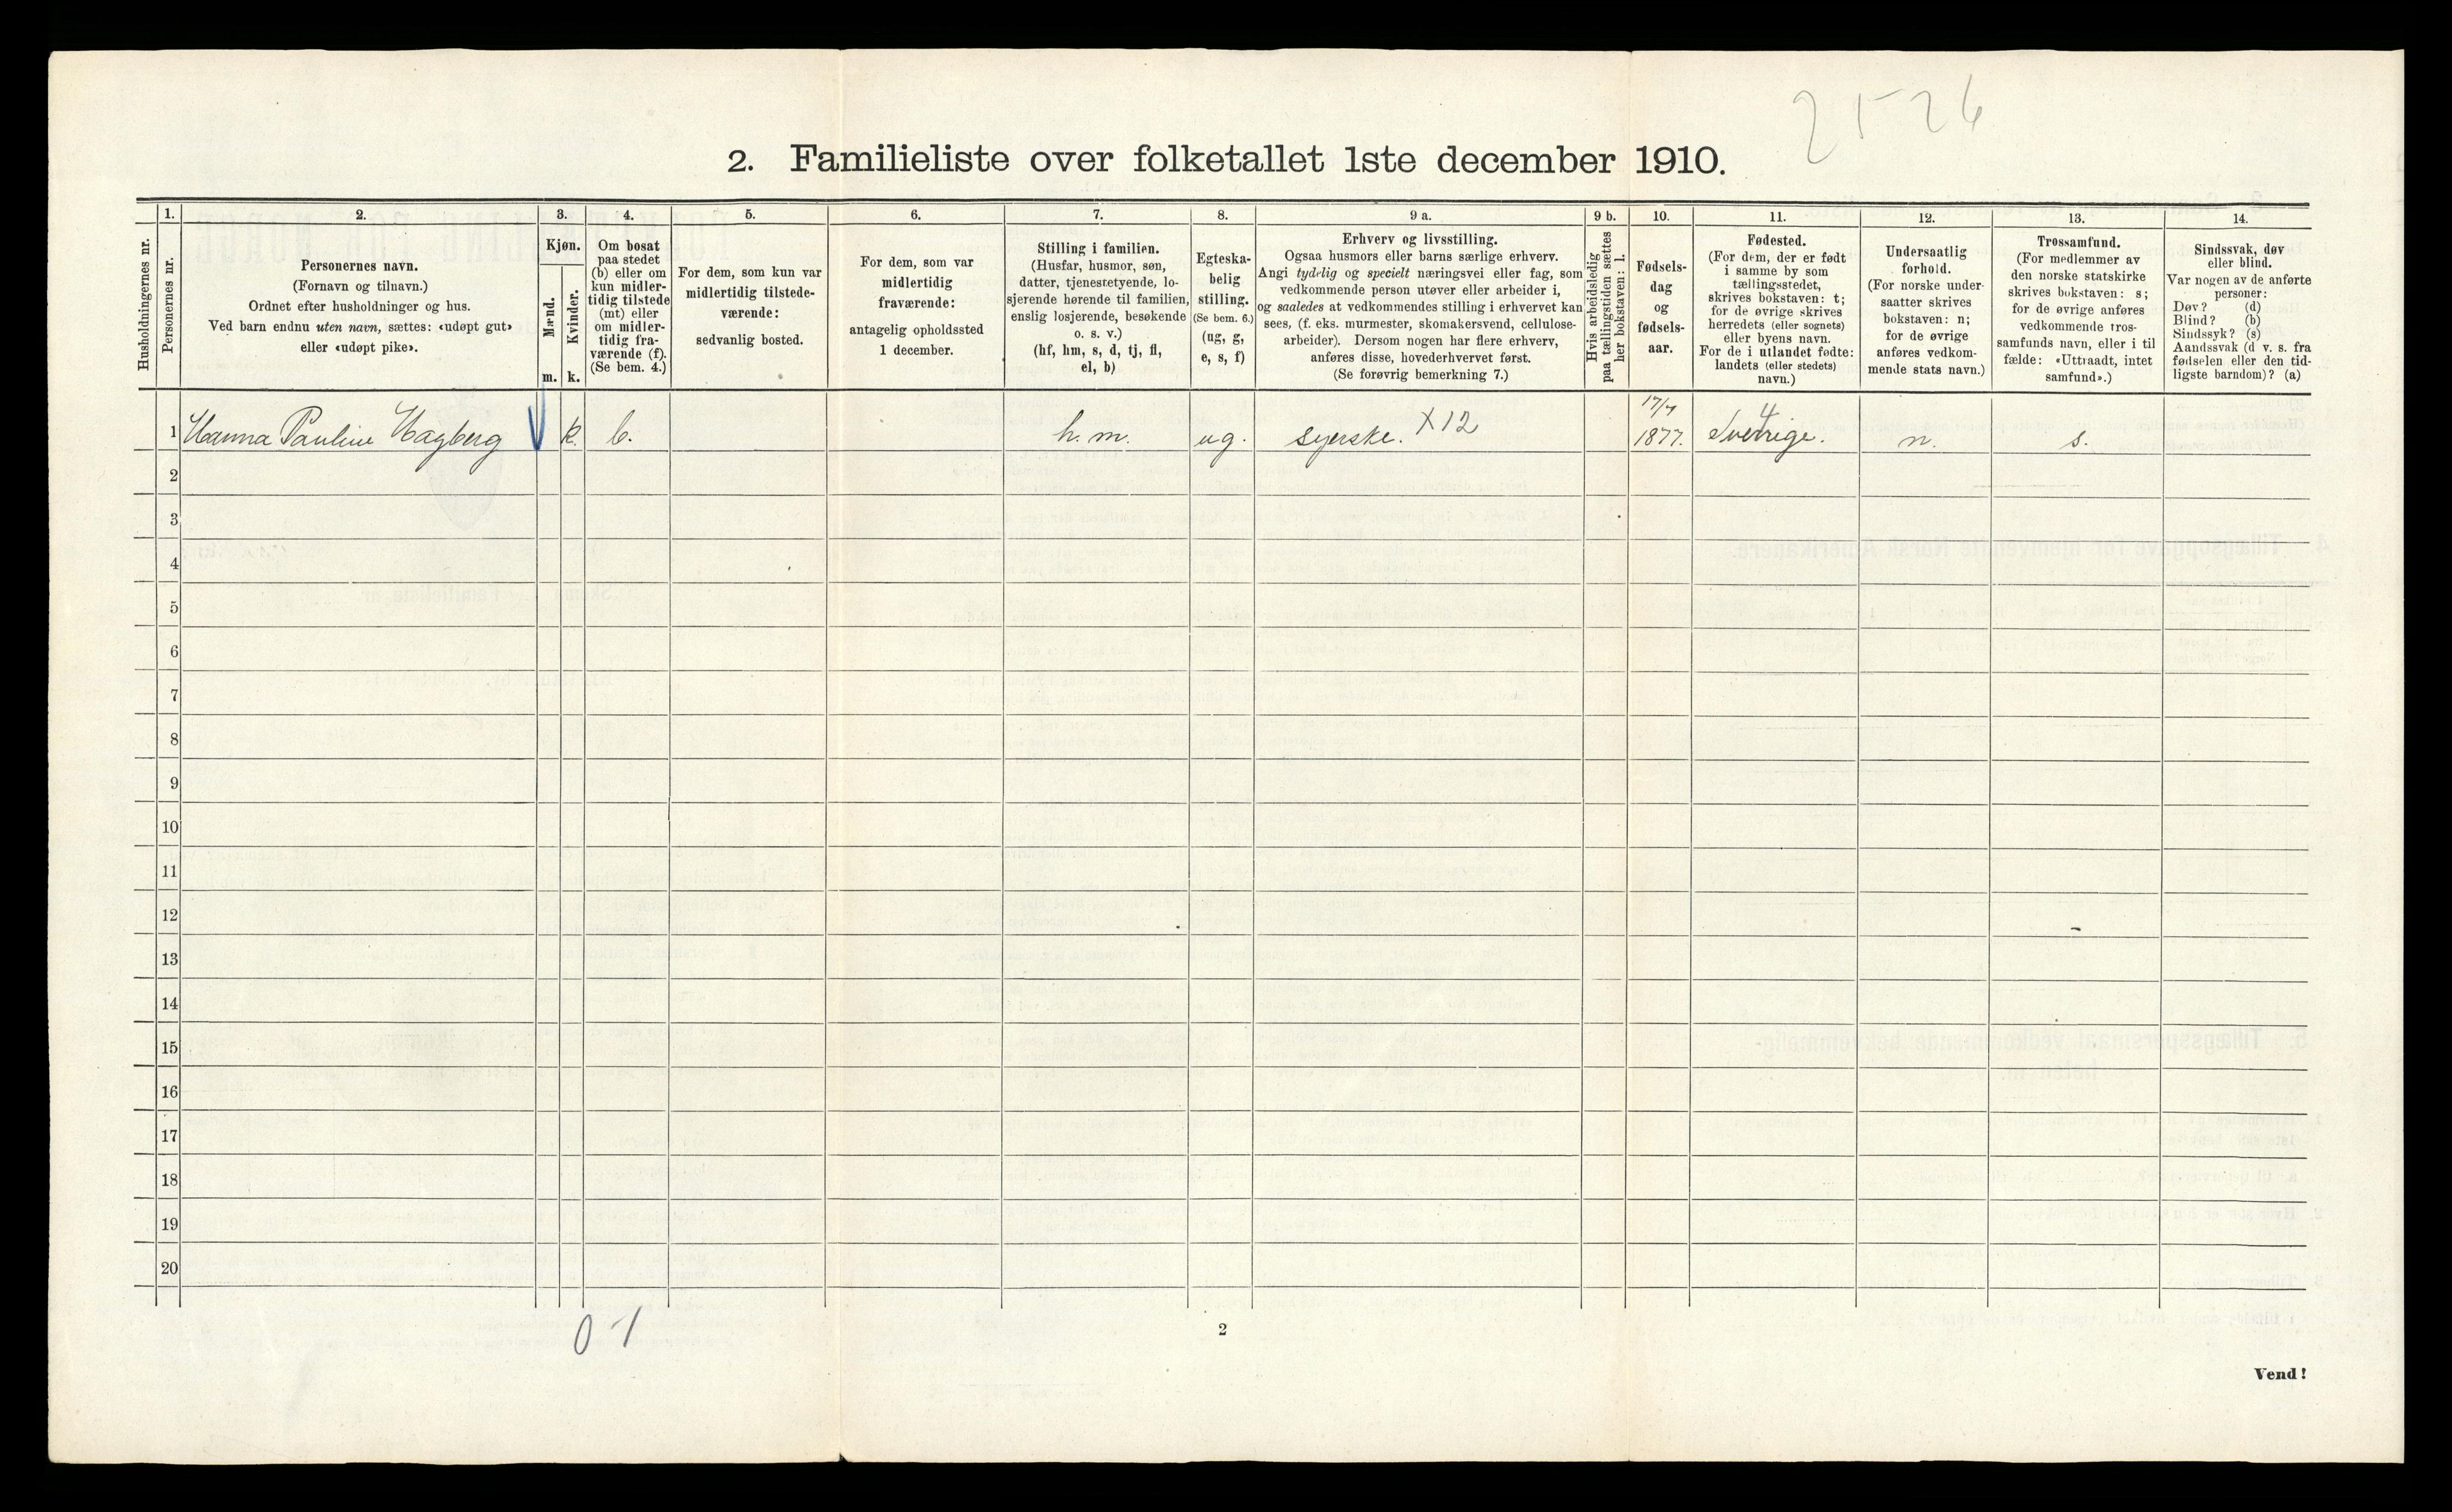 25-26
2. Familieliste over folketallet 1ste december 1910.
Husholdningernes nr.
1.
Personernes nr.
2.
Personernes navn.
(Fornavn og tilnavn.)
Ordnet efter husholdninger og hus.
Ved barn endnu uten navn, sættes: «udøpt gut»
eller «udøpt pike».
3.
Kjøn.
Mænd.
m.
Kvinder.
k.
4.
Om bosat
paa stedet
(b) eller om
kun midler-
tidig tilstede
(mt) eller
om midler-
tidig fra-
værende (f).
(Se bem. 4.)
5.
For dem, som kun var
midlertidig tilstede-
værende:
sedvanlig bosted.
6.
For dem, som var
midlertidig
fraværende:
antagelig opholdssted
1 december.
7.
Stilling i familien.
(Husfar, husmor, søn,
datter, tjenestetyende, lo-
sjerende hørende til familien,
enslig losjerende, besøkende
o. s. v.)
(hf, hm, s, d, tj, fl,
el, b)
8.
Egteska-
belig
stilling.
(Se bem. 6.)
(ug, g,
e, s, f)
9 a.
Erhverv og livsstilling.
Ogsaa husmors eller barns særlige erhverv.
Angi tydelig og specielt næringsvei eller fag, som
vedkommende person utøver eller arbeider i,
og saaledes at vedkommendes stilling i erhvervet kan
sees, (f. eks. murmester, skomakersvend, cellulose-
arbeider). Dersom nogen har flere erhverv,
anføres disse, hovederhvervet først.
(Se forøvrig bemerkning 7.)
9 b.
Hvis arbeidsledig
paa tællingstiden sættes
her bokstaven: l.
10.
Fødsels-
dag
og
fødsels-
aar.
11.
Fødested.
(For dem, der er født
i samme by som
tællingsstedet,
skrives bokstaven: t;
for de øvrige skrives
herredets (eller sognets)
eller byens navn.
For de i utlandet fødte:
landets (eller stedets)
navn.)
12.
Undersaatlig
forhold.
(For norske under-
saatter skrives
bokstaven: n;
for de øvrige
anføres vedkom-
mende stats navn.)
13.
Trossamfund.
(For medlemmer av
den norske statskirke
skrives bokstaven: s;
for de øvrige anføres
vedkommende tros-
samfunds navn, eller i til
fælde: «Uttraadt, intet
samfund».)
14.
Sindssvak, døv
eller blind.
Var nogen av de anførte
personer:
Døv? (d)
Blind? (b)
Sindssyk? (s)
Aandssvak (d v. s. fra
fødselen eller den tid-
ligste barndom)? (a)
1 Hanna Pauline Hagberg k. b. h.m. ug. syerske. X12 17/7 1877. Sverige. 4 n. s.
2
3
4
5
6
7
8
9
10
11
12
13
14
15
16
17
18
19
20
0 1
2
Vend!